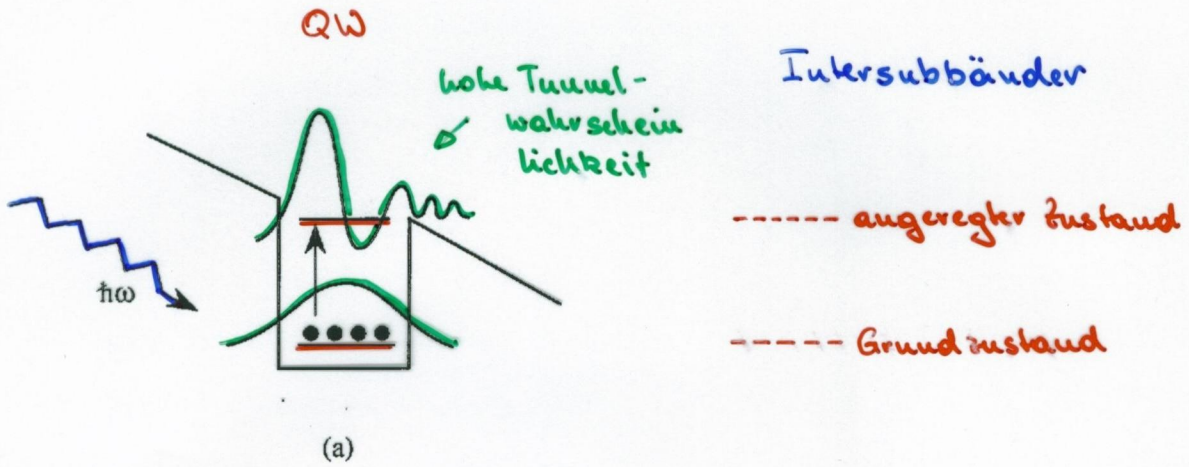 QW
hohe Tunnel-
wahrschein
lichkeit
Intersubbänder
angeregter Zustand
ħω
Grundzustand
(a)